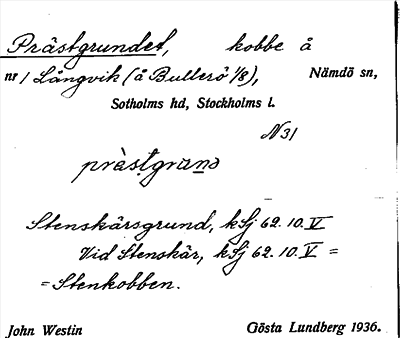 Prästgrundet, kobbe å
nr 1 Långvik (å Bullerö 1/8), Nämdö sn,
Sotholms hd, Stockholms l.
N 31
pràstgrunɔ
Stenskärsgrund, kSj 62.10.V
Vid Stenskär, kSj 62.10.V =
= Stenkobben.
John Westin Gösta Lundberg 1936.